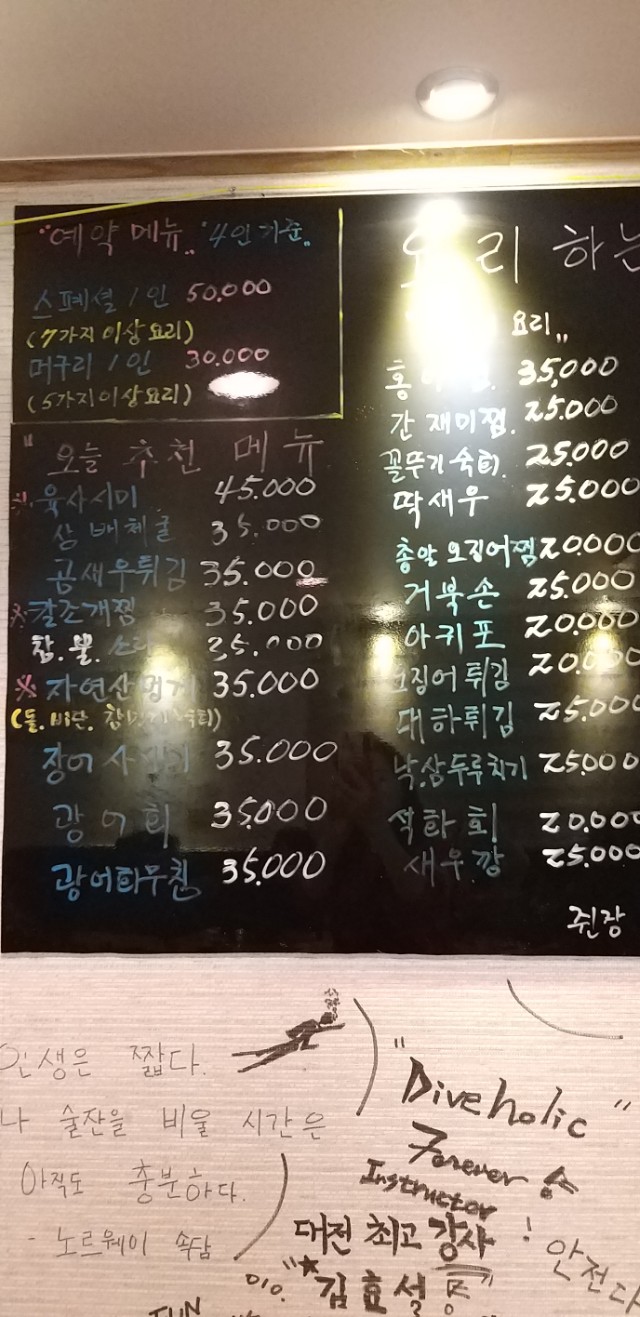 "예약 메뉴" "4인 기준"
스페셜 1인 50,000
(7가지 이상 요리)
머구리 1인 30,000
(5가지 이상 요리)
"오늘 추천 메뉴
※육사시미 45.000
삼배체굴 35.000
곰새우튀김 35.000
※칼조개찜 35.000
참.뿔. 35.000
※자연산 35.000
(돌.비단.
장어 35.000
광어회 35,000
광어회무침 35.000
요리하는
요리"
35,000
간재미찜. 25.000
꼴뚜기숙회. 25.000
딱새우 25.000
총알오징어찜 20.000
거북손 25.000
아귀포 20.000
오징어튀김 20.000
대하튀김 25.000
낙.삼두루치기 25.000
석화회 20.000
새우깡 25.000
쥔장
인생은 짧다.
나 술잔을 비울 시간은
아직도 충분하다.
- 노르웨이 속담
"Diveholic"
Forever
Instructor
대전 최고 강사!
"★김효설
안전다
FUN